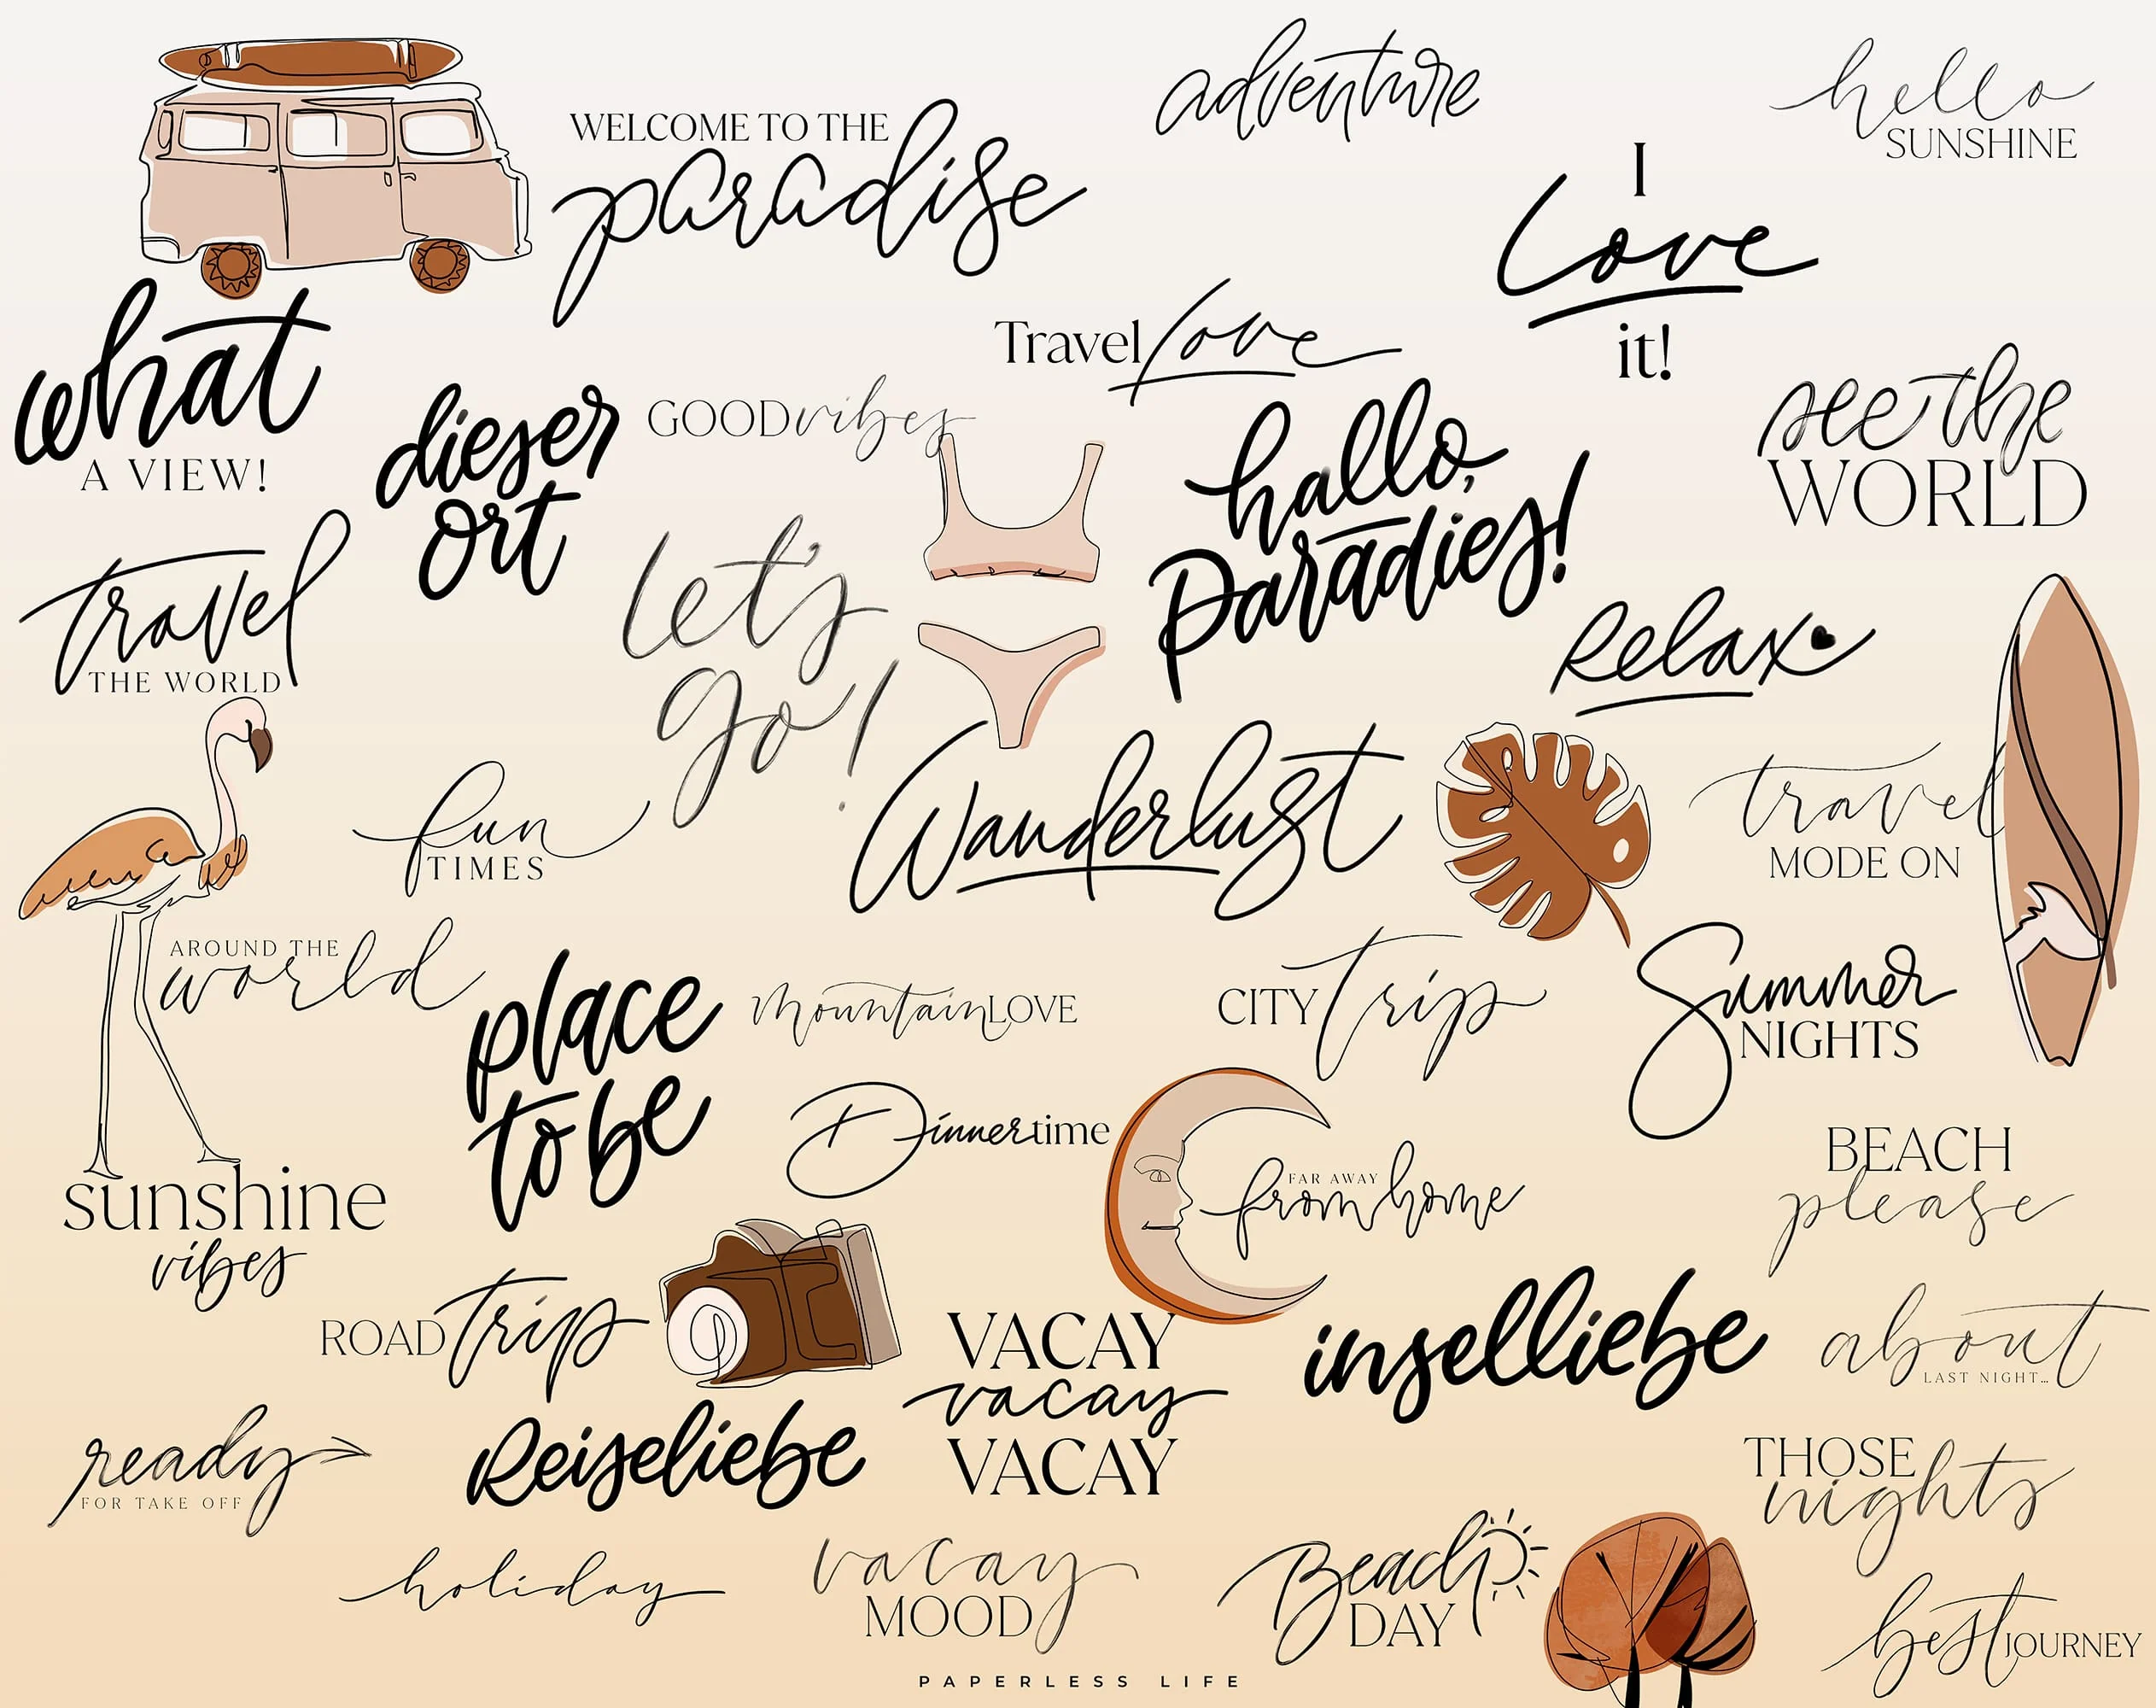 adventure
hello
SUNSHINE
WELCOME TO THE
paradise
I
Love
it!
what
A VIEW!
Travel Love
dieser
ort
GOOD vibes
hallo,
Paradies!
see the
WORLD
travel
THE WORLD
let's
go!
Relax
Wanderlust
fun
TIMES
travel
MODE ON
AROUND THE
world
place
to be
mountain LOVE
CITY trip
Summer
NIGHTS
Dinnertime
FAR AWAY
from home
BEACH
please
sunshine
vibes
ROAD trip
VACAY
vacay
VACAY
inselliebe
about
LAST NIGHT...
ready
FOR TAKE OFF
Reiseliebe
THOSE
nights
holiday
vacay
MOOD
Beach
DAY
best JOURNEY
PAPERLESS LIFE